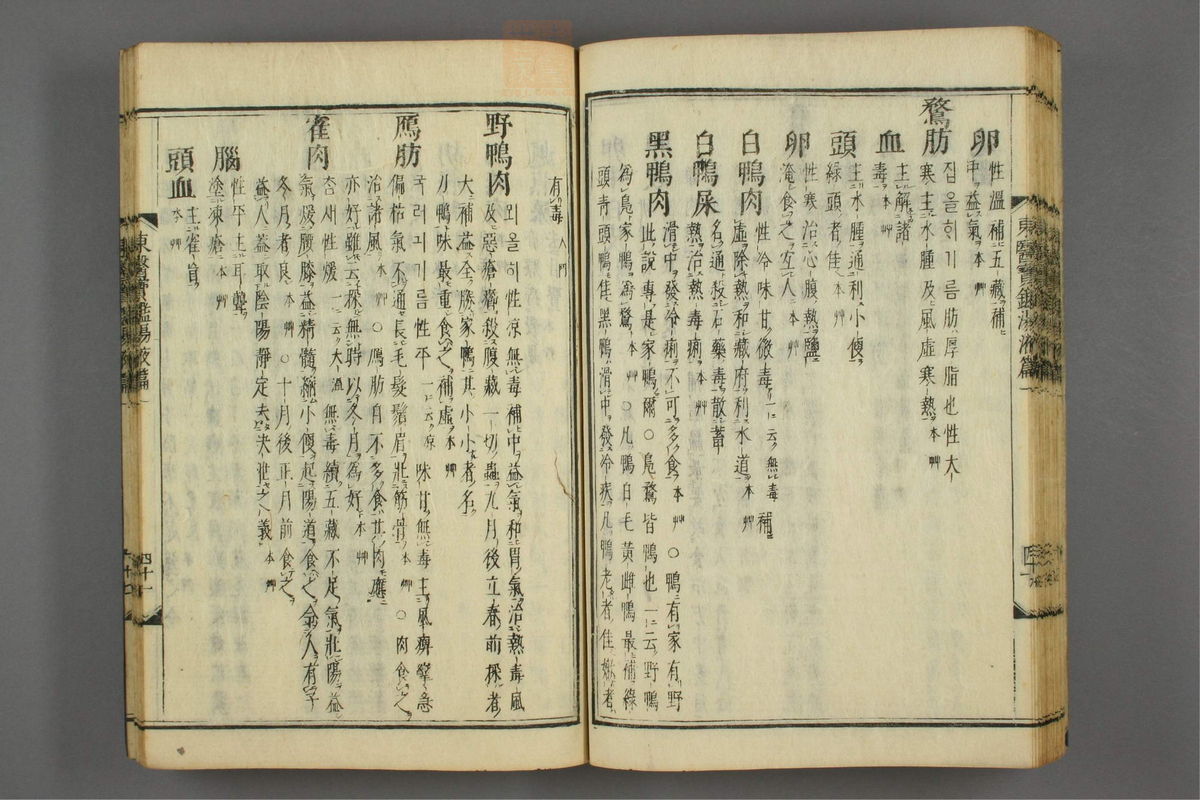 卵 性溫補五藏補
中益氣 本艸
鶩肪 집올히기름肪厚脂也性大
寒主水腫及風虛寒熱 本艸
血 主解諸
毒 本艸
頭 主水腫通利小便
綠頭者佳 本艸
卵 性寒治心腹熱鹽
淹食之宜人 本艸
白鴨肉 性冷味甘微毒 一云無毒 補
虛除熱和藏府利水道 本艸
白鴨屎 名通殺石藥毒散蓄
熱治熱毒痢 本艸
黑鴨肉 滑中發冷痢不可多食 本艸 ○鴨有家有野
此說專是家鴨爾○鳧鶩皆鴨也一云野鴨
為鳧家鴨為鶩 本艸 ○凡鴨白毛黃雌鴨最補綠
頭青頭鴨佳黑鴨滑中發冷疾凡鴨老者佳嫩者
有毒 入門
野鴨肉 뫼올히性涼無毒補中益氣和胃氣治熱毒風
及惡瘡癤殺腹藏一切蟲九月後立春前採者
大補益全勝家鴨其小小者名
刀鴨味最重食之補虛 本艸
鴈肪 그려기기름性平 一云涼 味甘無毒主風痺攣急
偏枯氣不通長毛髮鬚眉壯筋骨 本艸 ○肉食之
治諸風 本艸 ○鴈肪自不多食其肉應
亦好雖云採無時以冬月為好 本艸
雀肉 참새性煖 一云大溫 無毒續五藏不足氣壯陽益
氣煖腰膝益精髓縮小便起陽道食之令人有子
冬月者良 本艸 ○十月後正月前食之
益人益取陰陽靜定未決泄之義 本艸
腦 性平主耳聾
塗凍瘡 本艸
頭血 主雀盲
本艸
東醫寶鑑湯液篇一
四十一